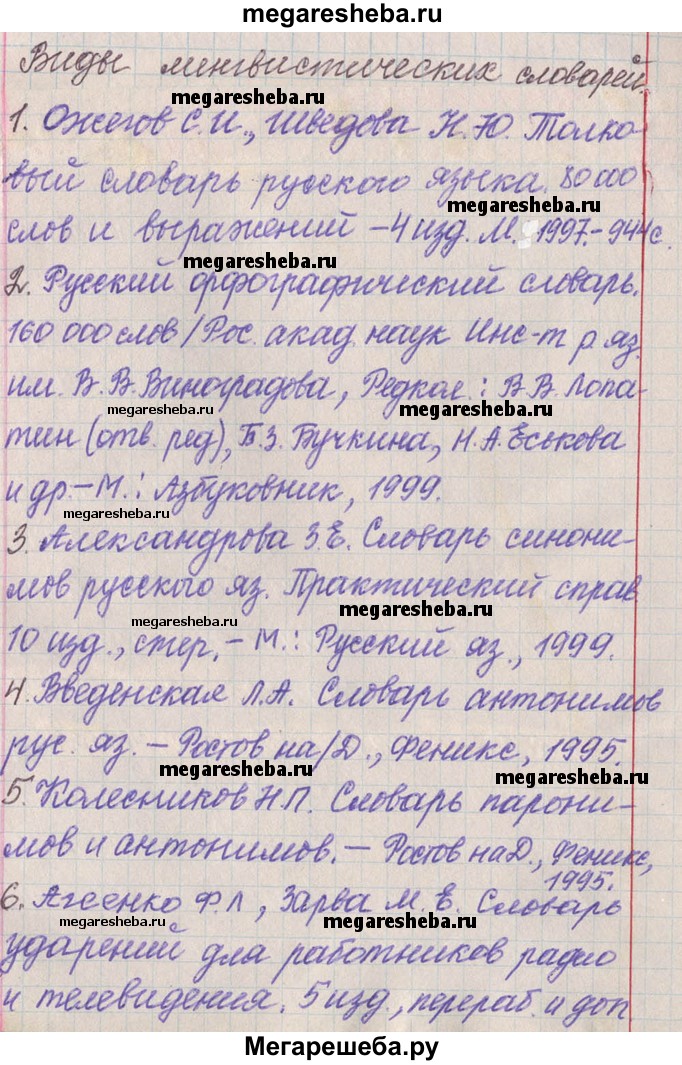 megaresheba.ru
Виды лингвистических словарей.
megaresheba.ru
1. Ожегов С.И., Шведова Н.Ю. Толко-
вый словарь русского языка. 80 000
megaresheba.ru
слов и выражений – 4 изд. М. 1997. – 944 с.
megaresheba.ru
2. Русский орфографический словарь.
160 000 слов / Рос. акад. наук Инс-т р. яз.
им. В. В. Виноградова, Редкол.: В. В. Лопа-
megaresheba.ru megaresheba.ru
тин (отв. ред), Б. З. Бучкина, Н. А. Еськова
и др. – М.: Азбуковник, 1999.
megaresheba.ru
3. Александрова З. Е. Словарь синони-
мов русского яз. Практический справ.
megaresheba.ru megaresheba.ru
10 изд., стер. – М.: Русский яз., 1999.
4. Введенская Л. А. Словарь антонимов
рус. яз. – Ростов на/Д., Феникс, 1995.
megaresheba.ru megaresheba.ru
5. Колесников Н. П. Словарь парони-
мов и антонимов. – Ростов на Д., Феникс,
1995.
6. Агеенко Ф. Л., Зарва М. Е. Словарь
megaresheba.ru megaresheba.ru
ударений для работников радио
и телевидения. 5 изд., перераб. и доп.
Мегарешеба.ру